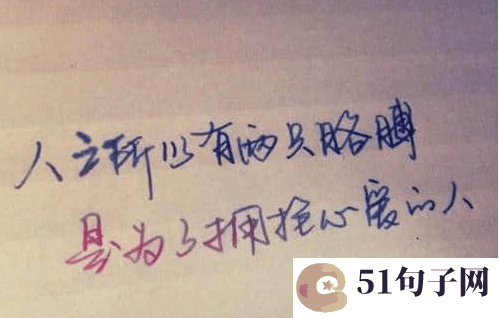 人之所以有两只胳膊
是为了拥抱心爱的人
51句子网